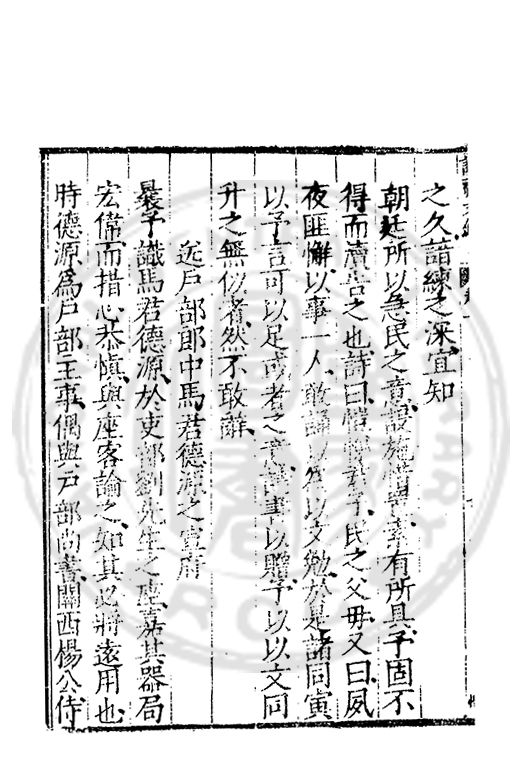 之久諳練之深宜知
朝廷所以急民之意設施措置素有所具予固不
得而瀆告之也詩曰愷悌君子民之父母又曰夙
夜匪懈以事一人敢誦以為以文勉於是諸同寅
以予言可以足或者之意請書以贈予以以文同
升之無似者然不敢辭
送戶部郎中馬君德源之重府
曩予識馬君德源於吏部劉先生之座嘉其器局
宏偉而措心恭慎與座客論之如其必將遠用也
時德源為戶部主事偶與戶部尚書關西楊公侍